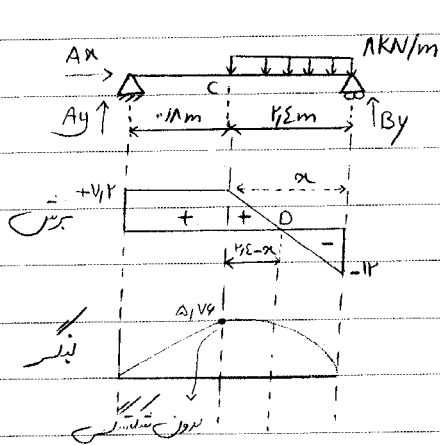 Ax ۸KN/m
C
Ay ۰٫۸m ۲٫۴m By
+۷٫۲ x
برش + + D -
۲٫۴-x -۱۲
۵٫۷۶
لنگر
بدون شکستگی